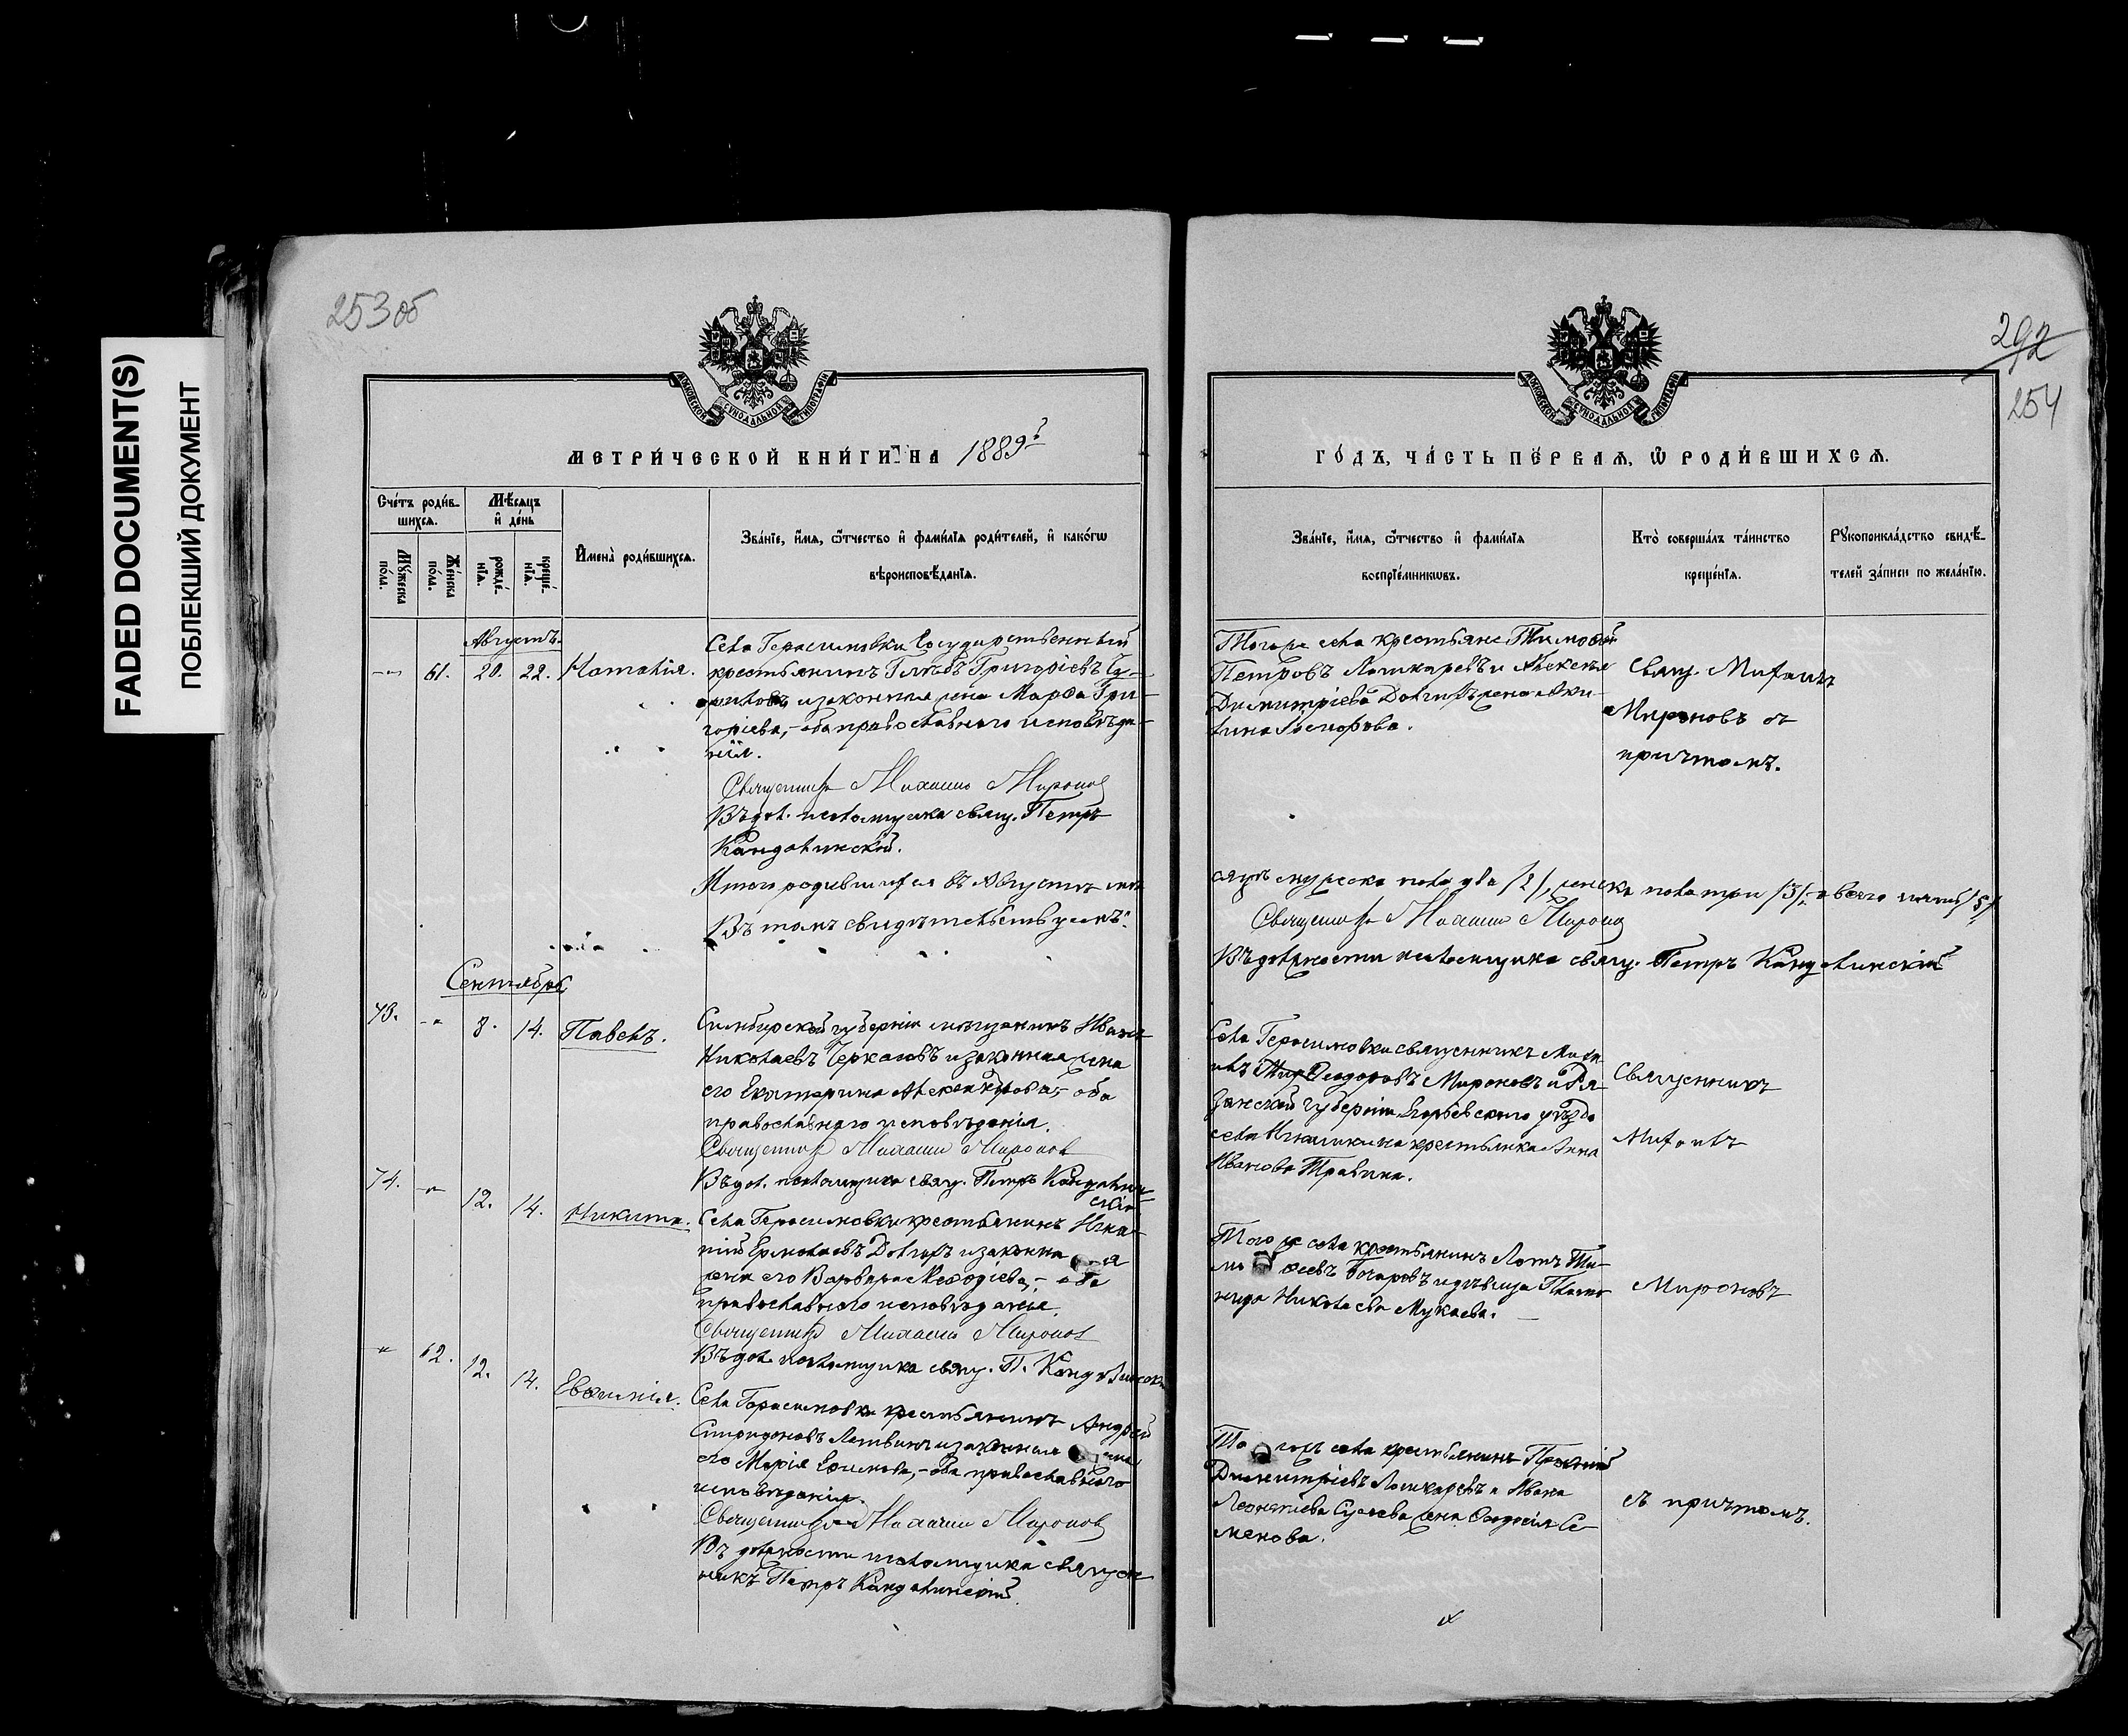 FADED DOCUMENT(S)
ПОБЛЕКШИЙ ДОКУМЕНТ
253 об
292
254
МОСКОВСКОЙ СУНОДАЛЬНОЙ ТИПОГРАФІИ
МОСКОВСКОЙ СУНОДАЛЬНОЙ ТИПОГРАФІИ
МЕТРИ́ЧЕСКОЙ КНИ́ГИ НА 1889 г
ГО́ДЪ, ЧА́СТЬ ПЕ́РВАЯ, Ѡ РОДИ́ВШИХСЯ.
Сче́тъ роди́в-
шихся.
Мѣ́сяцъ
и де́нь
Му́жеска по́ла.
Же́нска по́ла.
рожде́-
нїя.
креще́-
нїя.
Имена̀ роди́вшихся.
Зва́нїе, и́мя, ѻ́тчество и фами́лїя роди́телей, и како́гѡ
вѣроисповѣ́данїя.
Зва́нїе, и́мя, ѻ́тчество и фами́лїя
воспрїе́мникѡвъ.
Кто̀ соверша́лъ та́инство
креще́нїя.
Рꙋкоприкла́дство свидѣ́-
телей за́писи по жела́нїю.
Августъ.
61. 20. 22. Наталія.
Села Герасимовки Государственный
крестьянинъ Глѣбъ Григоріевъ Су-
и законная жена Марѳа Гри-
горіева, - оба православнаго исповѣда-
нія.
Священникъ Михаилъ Миронов
Въ дол. псаломщика свящ. Петръ
Кандалинскій.
Итого родившихся въ Августѣ мѣ-
Въ томъ свидѣтельствуемъ:
Тогоже села крестьяне Тимоѳей
Петровъ Лошкаревъ и Алексѣя
Димитріева жена Аки-
лина
Свящ. Михаилъ
Мироновъ съ
причтомъ.
сяцѣ мужеска пола два /2/, женска пола три /3/, а всего пять /5/
Священникъ Михаилъ Миронов
Въ должности псаломщика свящ. Петръ Кандалинскій
Сентябрь
70. 8. 14. Павелъ.
Симбирской губерніи мѣщанинъ Иванъ
Николаевъ Черкасовъ и законная жена
его Екатерина Александрова, - оба
православнаго исповѣданія.
Священникъ Михаилъ Миронов
Въ дол. псаломщика свящ. Петръ Кандалин-
скій
Села Герасимовки священникъ Миха-
илъ Ѳеодоровъ Мироновъ и Ря-
занской губерніи Егорьевскаго уѣзда
села крестьянка Анна
Иванова Травина.
Священникъ
Михаилъ
71. 12. 14. Никита.
Села Герасимовки крестьянинъ
Ермолаевъ и законная
жена его Варвара Меѳодіева, - оба
православнаго исповѣданія.
Священникъ Михаилъ Миронов
Въ дол. псаломщика свящ. П. Кандалински
Того же села крестьянинъ Ти-
моѳеевъ Бочаровъ и дѣвица
Николаева Мукаева.
Мироновъ
62. 12. 14. Евѳимія.
Села Герасимовки крестьянинъ Андрей
Спиридоновъ Литвинъ и законная жена
его Марія Ефимова, - оба православнаго
исповѣданія.
Священникъ Михаилъ Миронов
Въ должности псаломщика священ-
никъ Петръ Кандалинскій
Того жъ села крестьянинъ
Димитріевъ Лошкаревъ и Ивана
Леонтіева жена Се-
менова.
съ причтомъ.